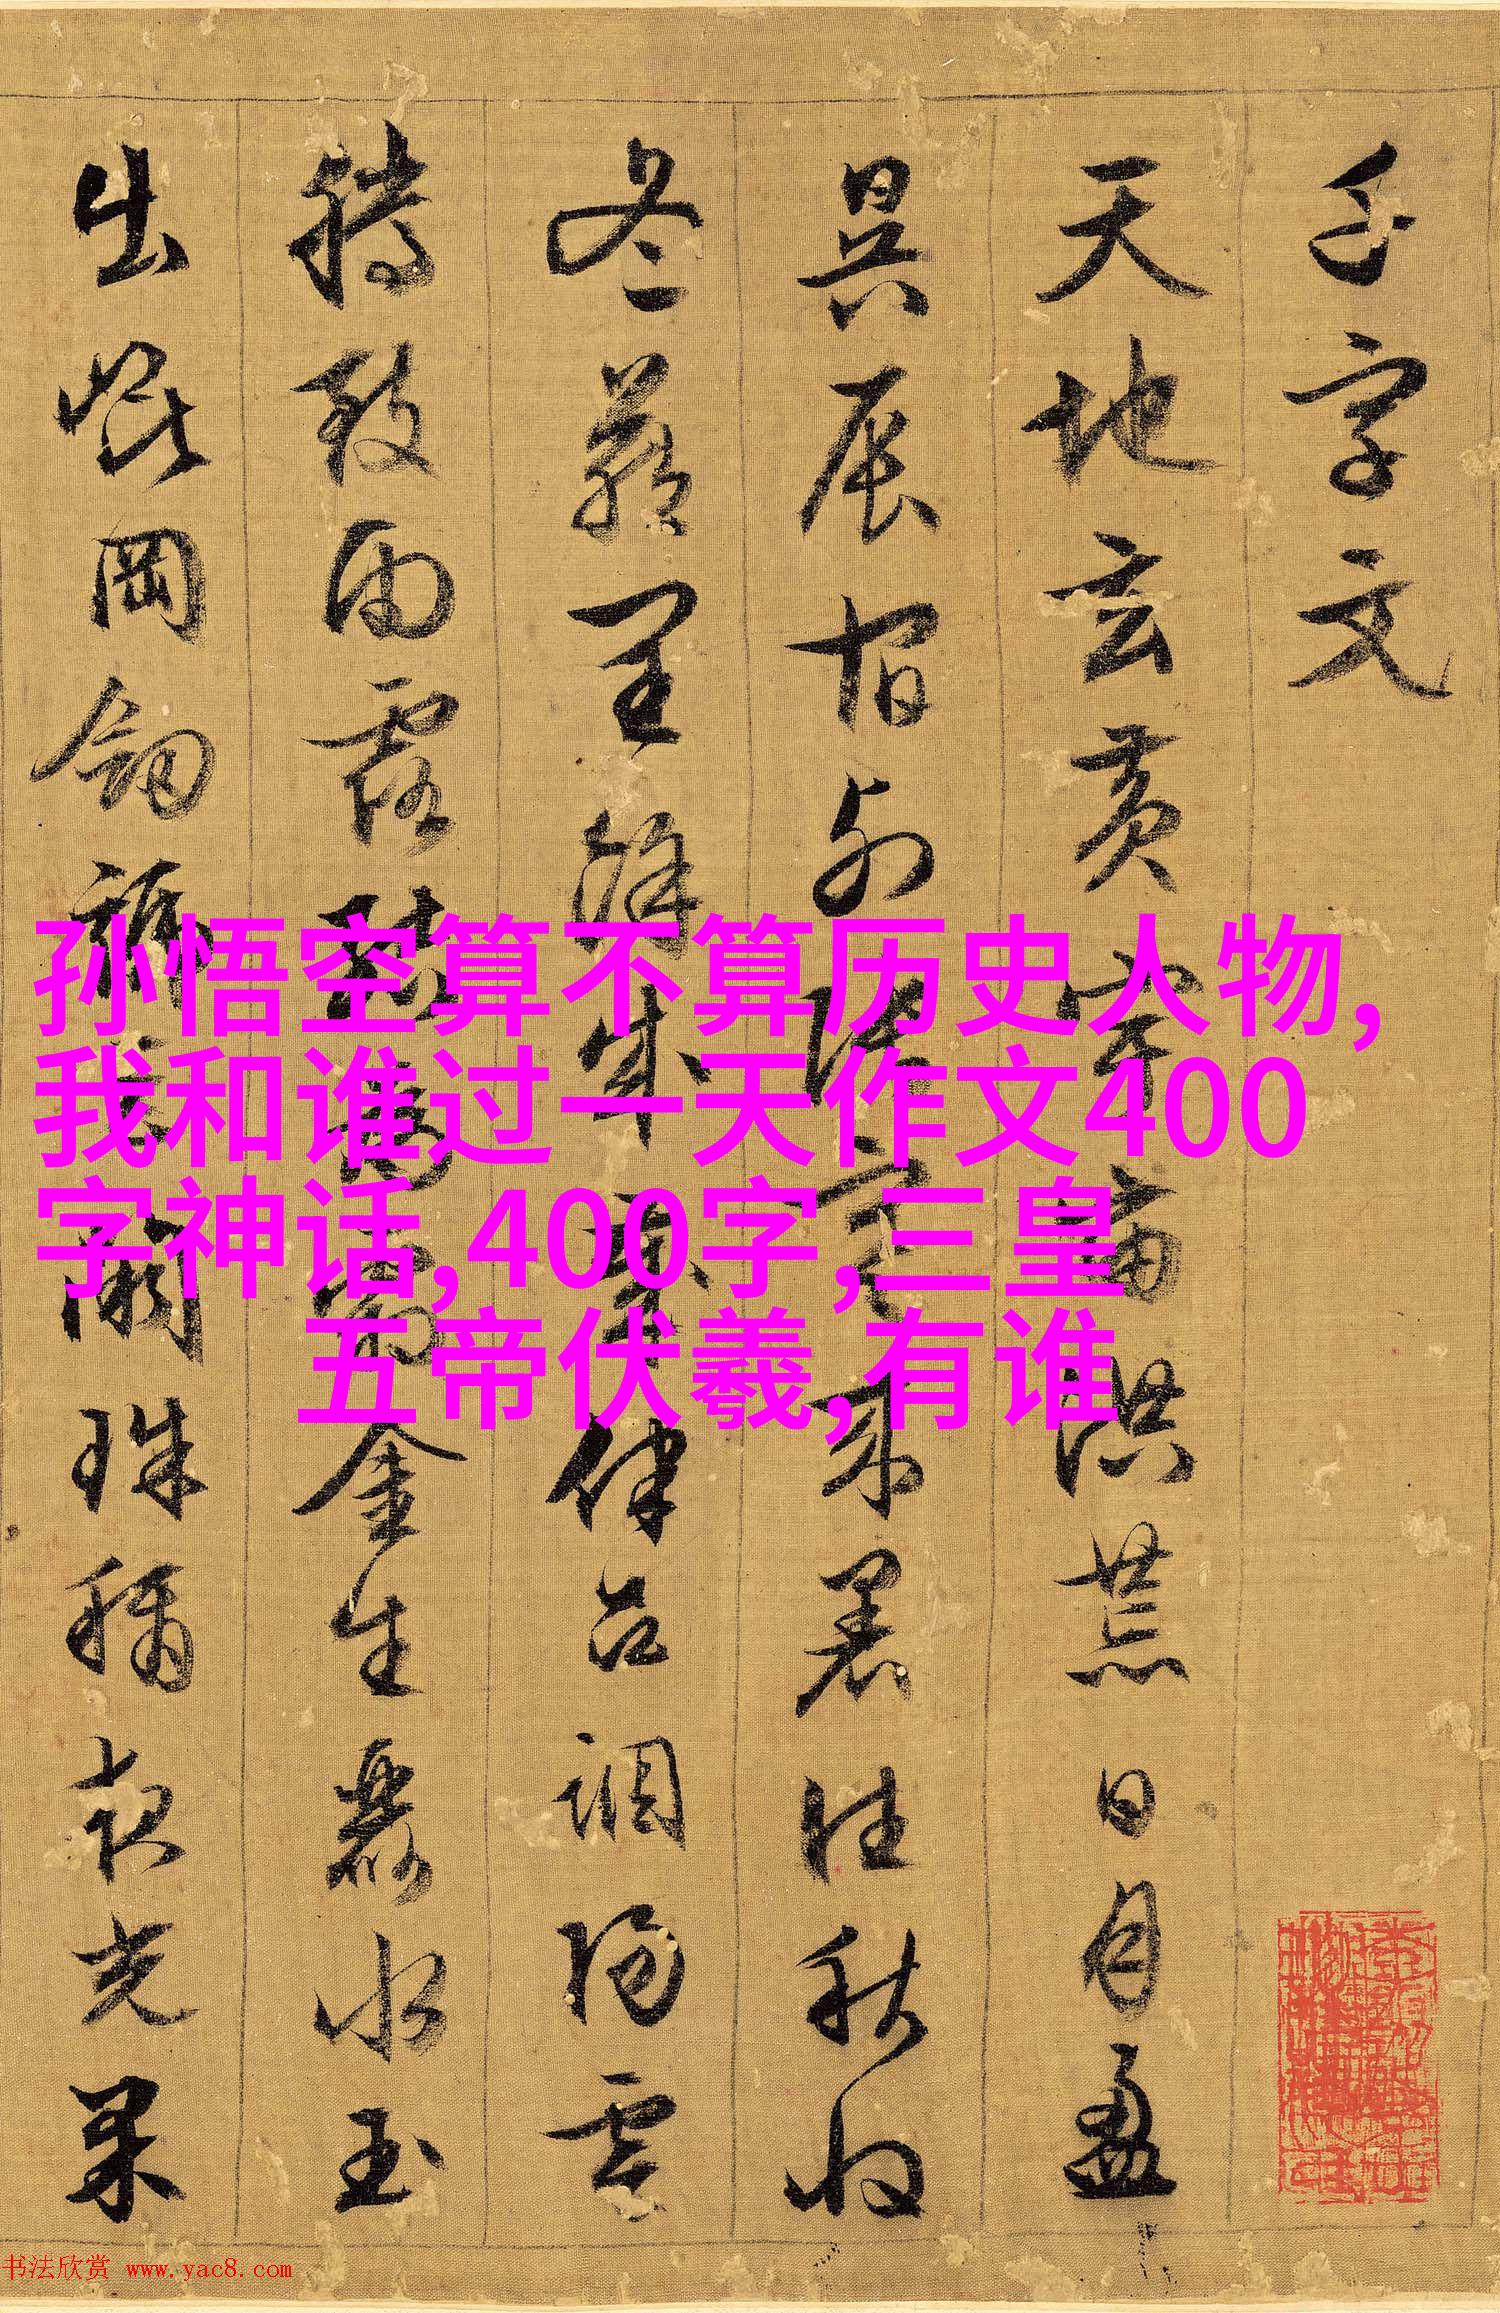 千字文
天地玄黃宇宙洪荒日月盈
昃辰宿列張寒來暑往秋收
冬藏閏餘成歲律呂調陽雲
騰致雨露結為霜金生麗水玉
出崑岡劍號巨闕珠稱夜光果
孙悟空算不算历史人物,
我和谁过一天作文400
字神话,400字,三皇
五帝伏羲,有谁
书法欣赏 www.yac8.com